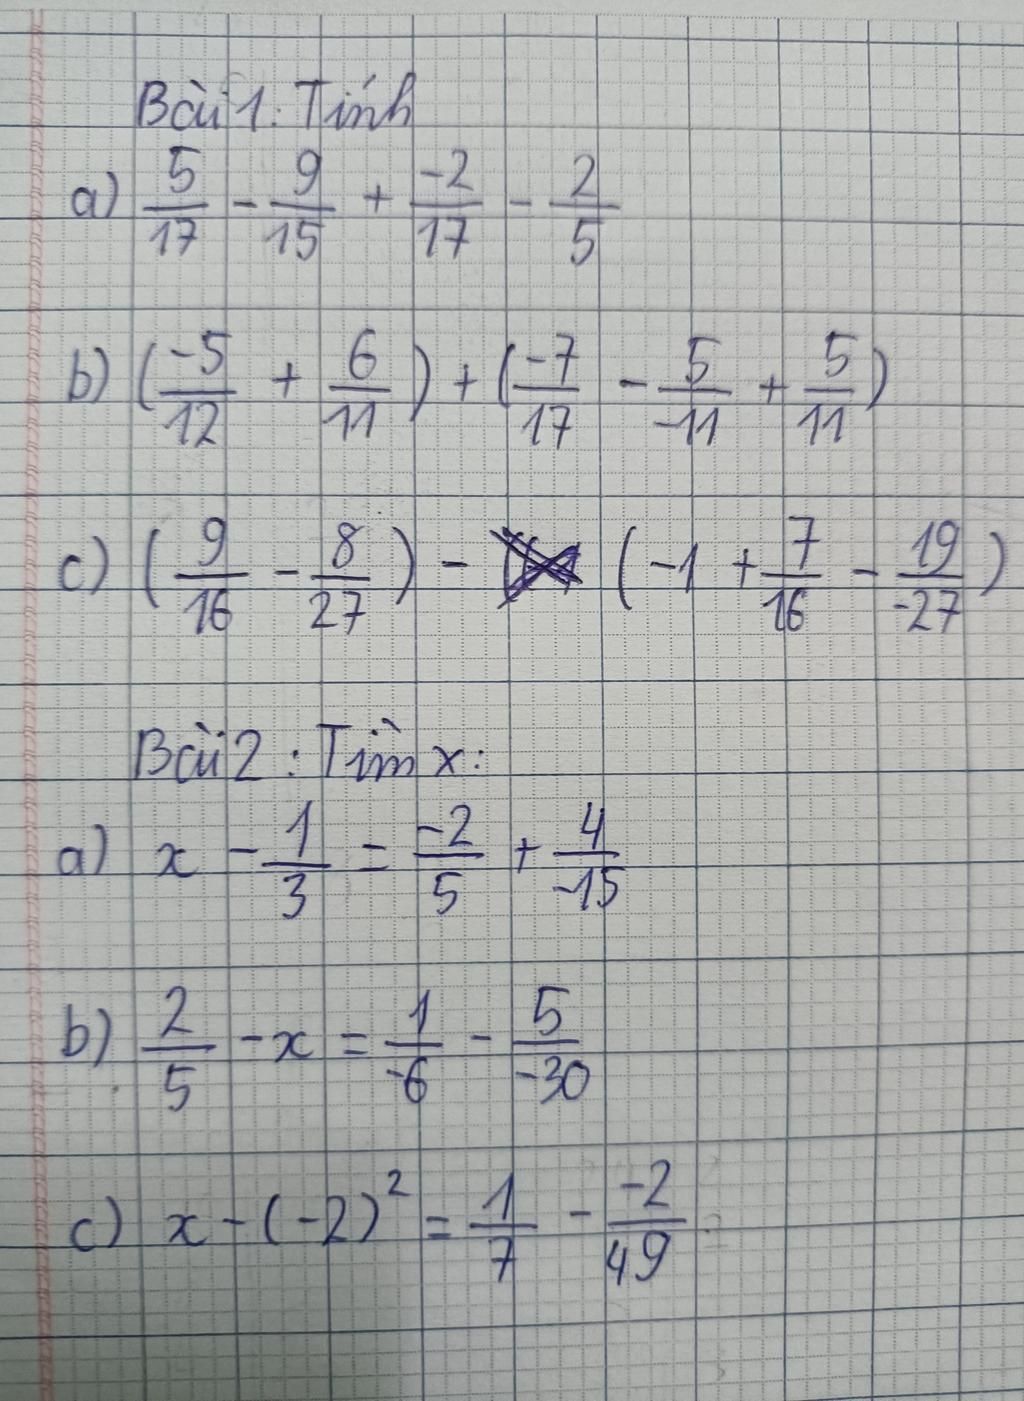 Bài 1: Tính
a) 5/17 - 9/15 + -2/17 - 2/5
b) (-5/12 + 6/11) + (-7/17 - 5/-11 + 5/11)
c) (9/16 - 8/27) - (-1 + 7/16 - 19/-27)
Bài 2: Tìm x:
a) x - 1/3 = -2/5 + 4/-15
b) 2/5 - x = 1/-6 - 5/-30
c) x - (-2)² = 1/7 - -2/49